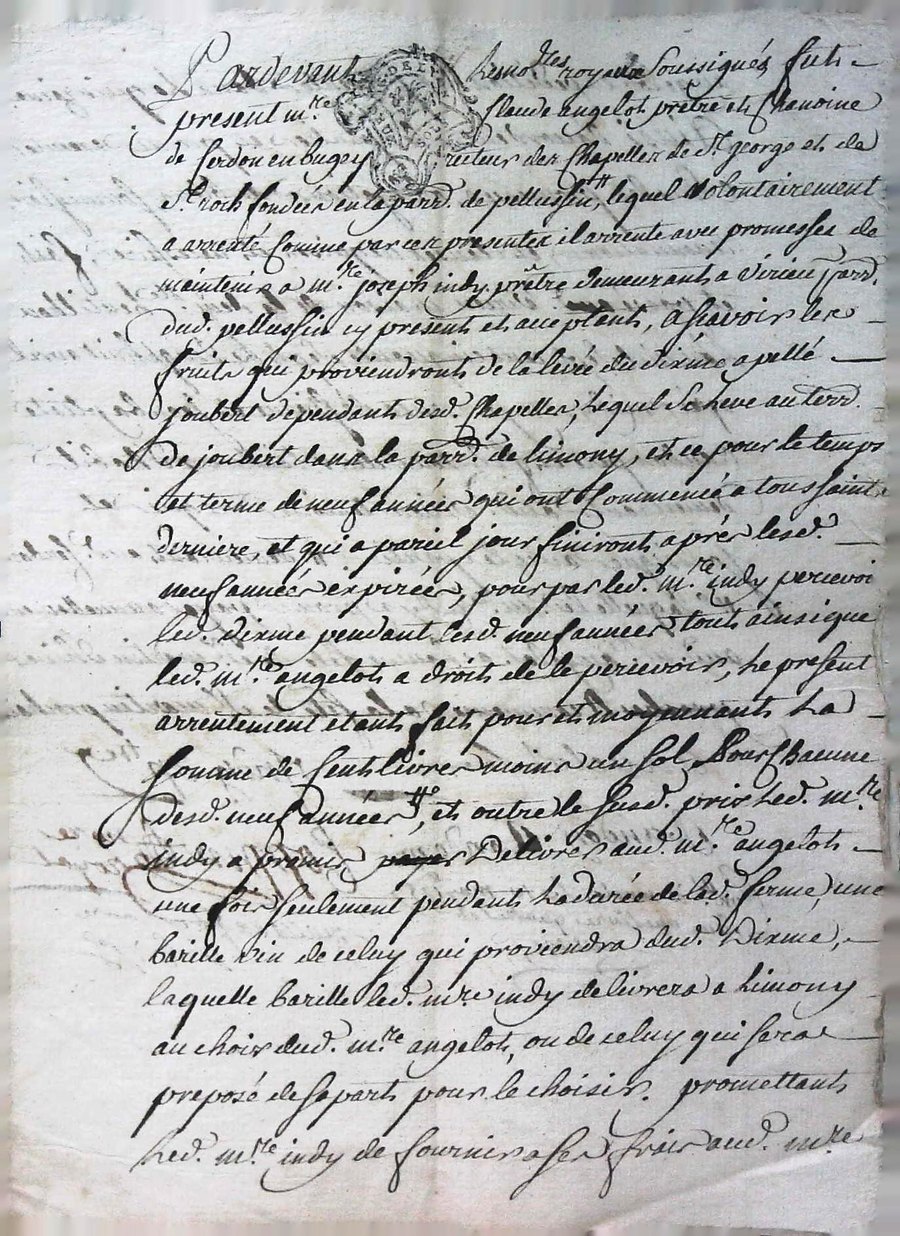 Pardevant Les no.res royaux Soussignés futs
present m.re Claude angelot prêtre et Chanoine
de Cerdon en bugey, recteur des Chapelles de St. george et de
St. roch fondées en la parr.e de pellussin, lequel volontairement
a arrenté Comme par ces presentes il arrente avec promesses de
maintenir a m.re joseph indy prêtre demeurant a virieu parr.
dud. pellussin cy present et acceptant, a scavoir les
fruits qui proviendront de la levée du dixme apellé
joubert dependant desd. Chapelles, Lequel se Leve au terr.
de joubert dans la parr.e de limony, et ce pour le temps
et terme de neuf années qui ont Commencé a toussaint
derniere, et qui a pareil jour finiront après lesd.
neuf années expirées, pour par led. m.re indy percevoi
led. dixme pendant lesd. neuf années tout ainsi que
led. m.re angelot a droit de le percevoir, Le present
arrentement etant fait pour et moyennant La
Somme de Cent livres moins un sol Pour Chacune
desd. neuf années, et outre le susd. prix Led. m.re
indy a promis payer Delivrer aud. m.re angelot
une fois seulement pendant La durée de lad. ferme, une
barille vin de celuy qui proviendra dud. Dixme,
laquelle barille led. m.re indy delivrera a Limony
au choix dud. m.re angelot, ou de celuy qui sera
preposé de sa part pour le choisir. promettant
Led. m.re indy de fournir a ses frais aud. m.re